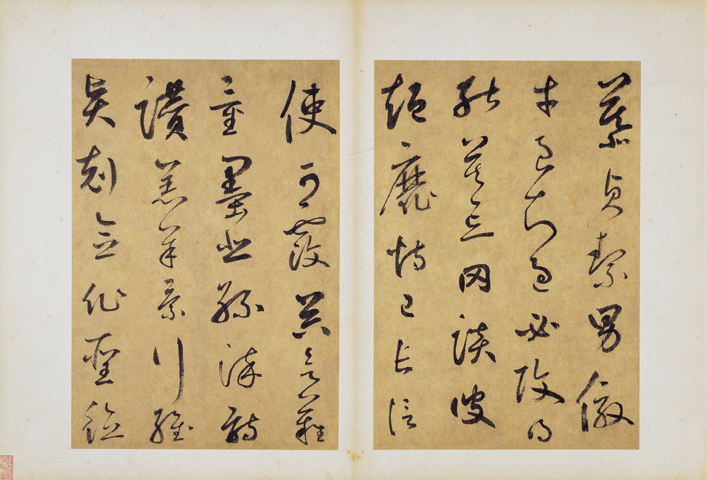 慕貞絜男效
才良知過必改得
能莫忘罔談彼
短靡恃己長信
使可覆器欲難
量墨悲絲染詩
讚羔羊景行維
賢剋念作聖德